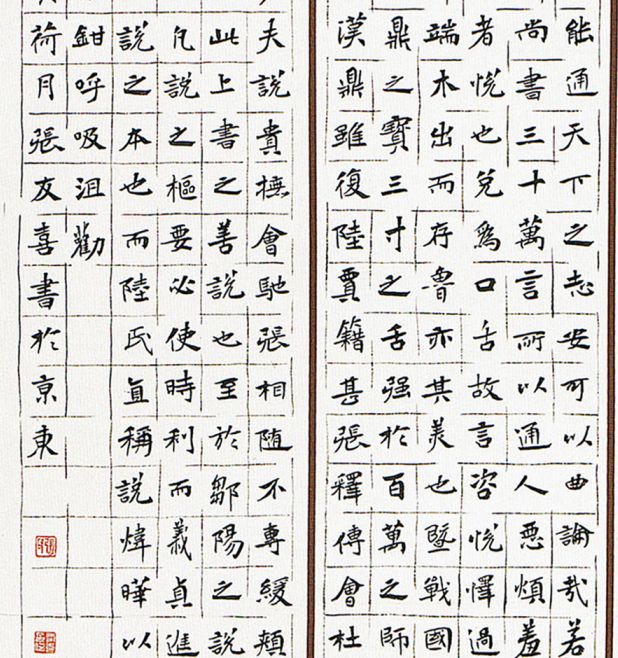 能通天下之志安可以曲論哉若
尚書三十萬言所以通人惡煩羞
者悅也兌為口舌故言咨悅懌過
端木出而存魯亦其美也暨戰國
鼎之寶三寸之舌强於百萬之師
漢鼎雖復陸賈籍甚張釋傅會杜
夫說貴撫會馳張相随不專緩頰
此上書之善說也至於鄒陽之說
凡說之樞要必使時利而義貞進
說之本也而陸氏直稱說煒曄以
鉗呼吸沮勸
荷月張友喜書於京東